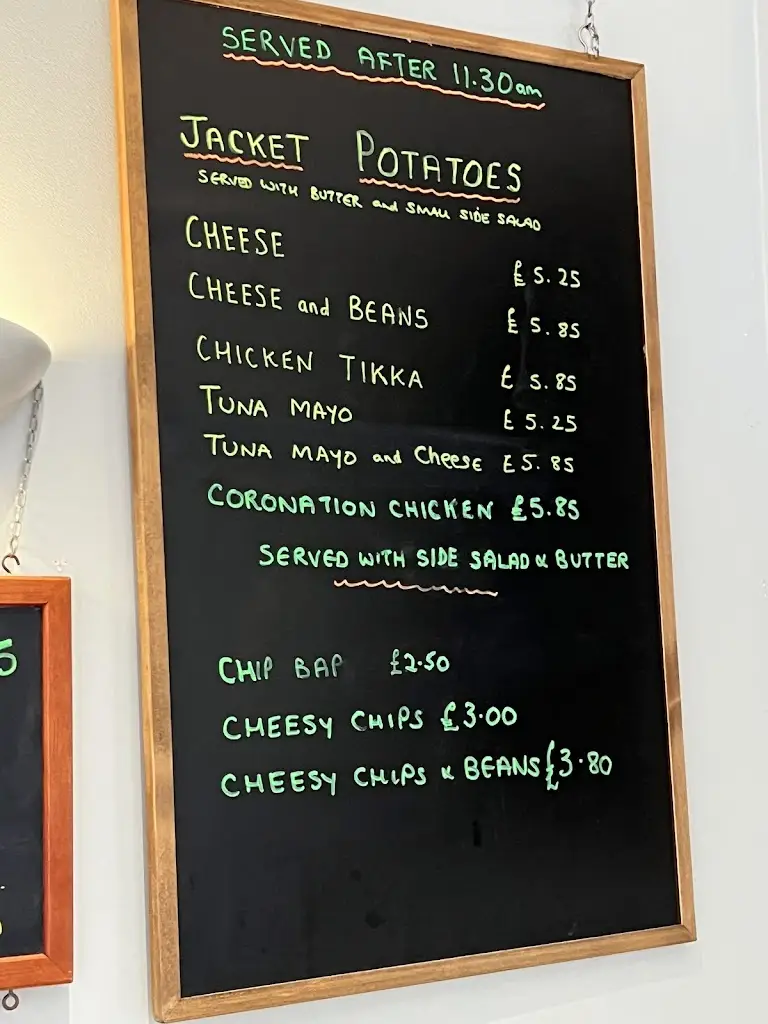 SERVED AFTER 11.30am
JACKET POTATOES
SERVED WITH BUTTER and SMALL SIDE SALAD
CHEESE £5.25
CHEESE and BEANS £5.85
CHICKEN TIKKA £5.85
TUNA MAYO £5.25
TUNA MAYO and Cheese £5.85
CORONATION CHICKEN £5.85
SERVED WITH SIDE SALAD & BUTTER
CHIP BAP £2.50
CHEESY CHIPS £3.00
CHEESY CHIPS & BEANS £3.80
5